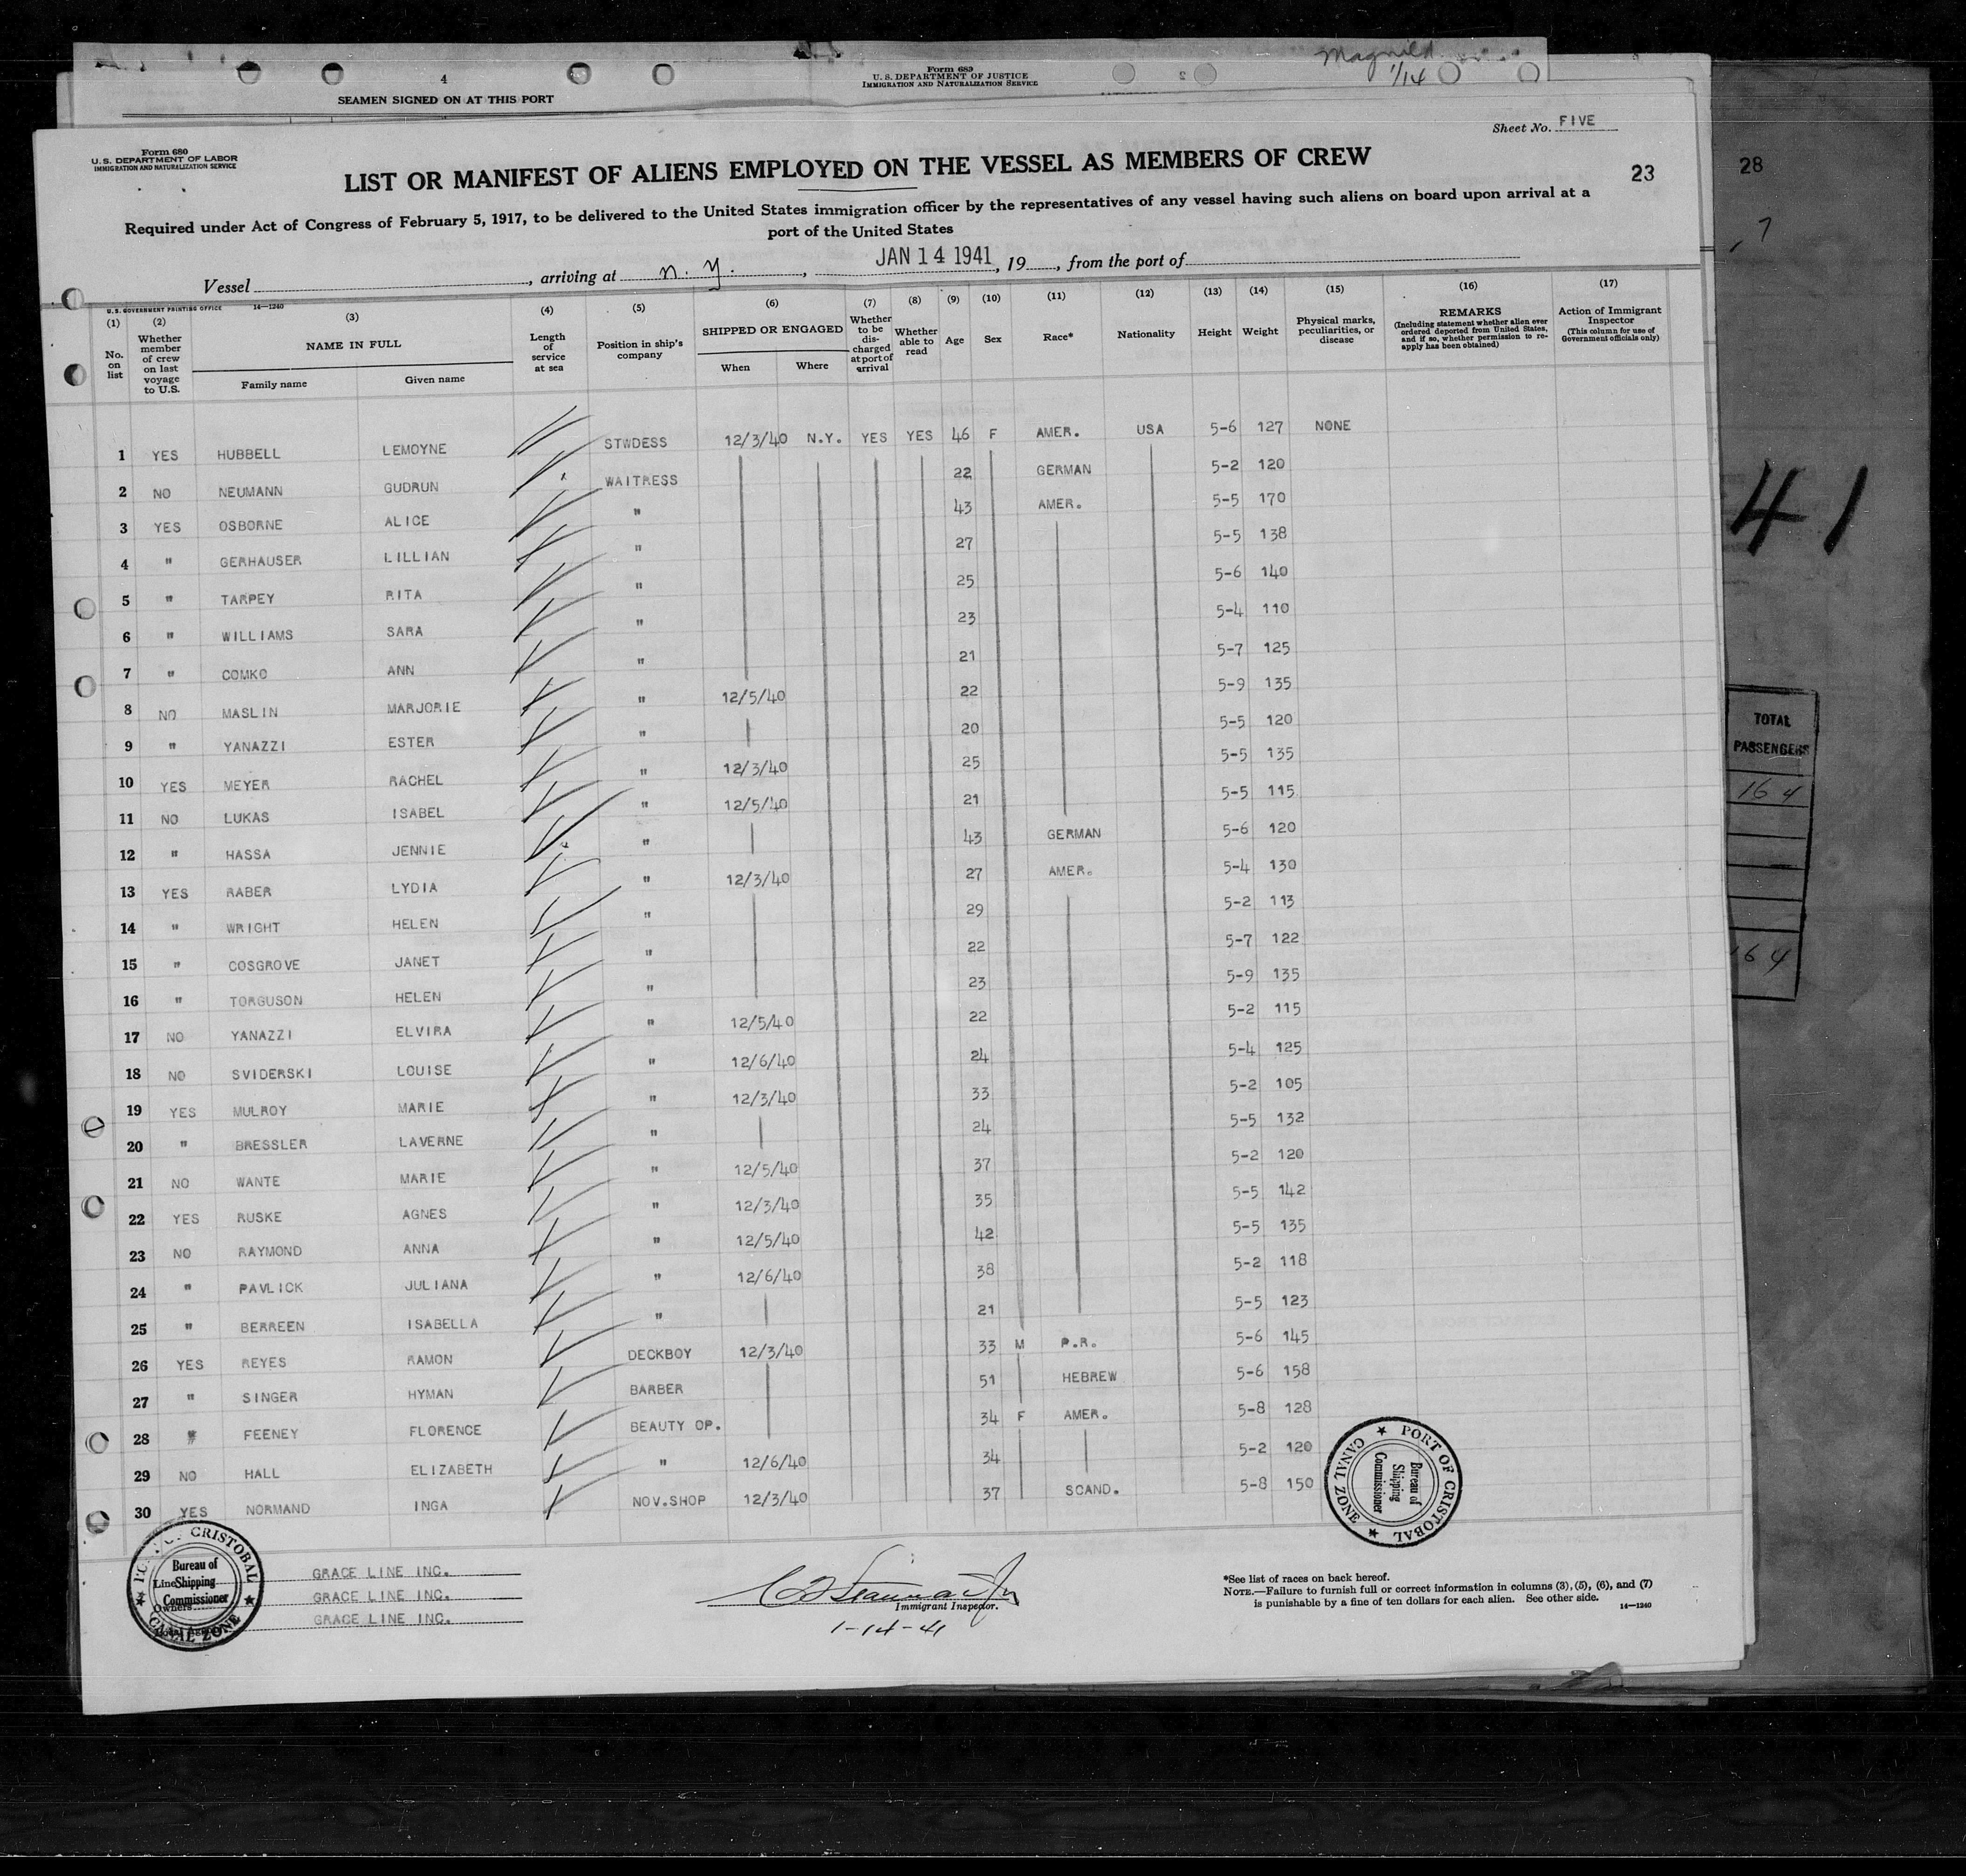 4
SEAMEN SIGNED ON AT THIS PORT
Form 689
U. S. DEPARTMENT OF JUSTICE
IMMIGRATION AND NATURALIZATION SERVICE
1/14
Sheet No. FIVE
Form 680
U. S. DEPARTMENT OF LABOR
IMMIGRATION AND NATURALIZATION SERVICE
LIST OR MANIFEST OF ALIENS EMPLOYED ON THE VESSEL AS MEMBERS OF CREW
23
28
Required under Act of Congress of February 5, 1917, to be delivered to the United States immigration officer by the representatives of any vessel having such aliens on board upon arrival at a
port of the United States
7
Vessel , arriving at n. y. , JAN 14 1941 , 19 , from the port of
U. S. GOVERNMENT PRINTING OFFICE 14—1240
(1) No. on list
(2) Whether member of crew on last voyage to U.S.
(3) NAME IN FULL Family name Given name
(4) Length of service at sea
(5) Position in ship's company
(6) SHIPPED OR ENGAGED When Where
(7) Whether to be discharged at port of arrival
(8) Whether able to read
(9) Age
(10) Sex
(11) Race*
(12) Nationality
(13) Height
(14) Weight
(15) Physical marks, peculiarities, or disease
(16) REMARKS (Including statement whether alien ever ordered deported from United States, and if so, whether permission to re-apply has been obtained)
(17) Action of Immigrant Inspector (This column for use of Government officials only)
1 YES HUBBELL LEMOYNE STWDESS 12/3/40 N.Y. YES YES 46 F AMER. USA 5-6 127 NONE
2 NO NEUMANN GUDRUN WAITRESS 22 GERMAN 5-2 120
3 YES OSBORNE ALICE " 43 AMER. 5-5 170
4 " GERHAUSER LILLIAN " 27 5-5 138
5 " TARPEY RITA " 25 5-6 140
6 " WILLIAMS SARA " 23 5-4 110
7 " COMKO ANN " 21 5-7 125
8 NO MASLIN MARJORIE " 12/5/40 22 5-9 135
9 " YANAZZI ESTER " 20 5-5 120
10 YES MEYER RACHEL " 12/3/40 25 5-5 135
11 NO LUKAS ISABEL " 12/5/40 21 5-5 115
12 " HASSA JENNIE " 43 GERMAN 5-6 120
13 YES RABER LYDIA " 12/3/40 27 AMER. 5-4 130
14 " WRIGHT HELEN " 29 5-2 113
15 " COSGROVE JANET " 22 5-7 122
16 " TORGUSON HELEN " 23 5-9 135
17 NO YANAZZI ELVIRA " 12/5/40 22 5-2 115
18 NO SVIDERSKI LOUISE " 12/6/40 24 5-4 125
19 YES MULROY MARIE " 12/3/40 33 5-2 105
20 " BRESSLER LAVERNE " 24 5-5 132
21 NO WANTE MARIE " 12/5/40 37 5-2 120
22 YES RUSKE AGNES " 12/3/40 35 5-5 142
23 NO RAYMOND ANNA " 12/5/40 42 5-5 135
24 " PAVLICK JULIANA " 12/6/40 38 5-2 118
25 " BERREEN ISABELLA " 21 5-5 123
26 YES REYES RAMON DECKBOY 12/3/40 33 M P.R. 5-6 145
27 " SINGER HYMAN BARBER 51 HEBREW 5-6 158
28 " FEENEY FLORENCE BEAUTY OP. 34 F AMER. 5-8 128
29 NO HALL ELIZABETH " 12/6/40 34 5-2 120
30 YES NORMAND INGA NOV.SHOP 12/3/40 37 SCAND. 5-8 150
41
TOTAL
PASSENGERS
164
164
PORT OF CRISTOBAL
Bureau of
Shipping
Commissioner
CANAL ZONE
CRISTOBAL
Bureau of
Shipping
Commissioner
CANAL ZONE
Line GRACE LINE INC.
Owners GRACE LINE INC.
GRACE LINE INC.
Immigrant Inspector.
1-14-41
*See list of races on back hereof.
NOTE.—Failure to furnish full or correct information in columns (3), (5), (6), and (7)
is punishable by a fine of ten dollars for each alien. See other side.
14—1240